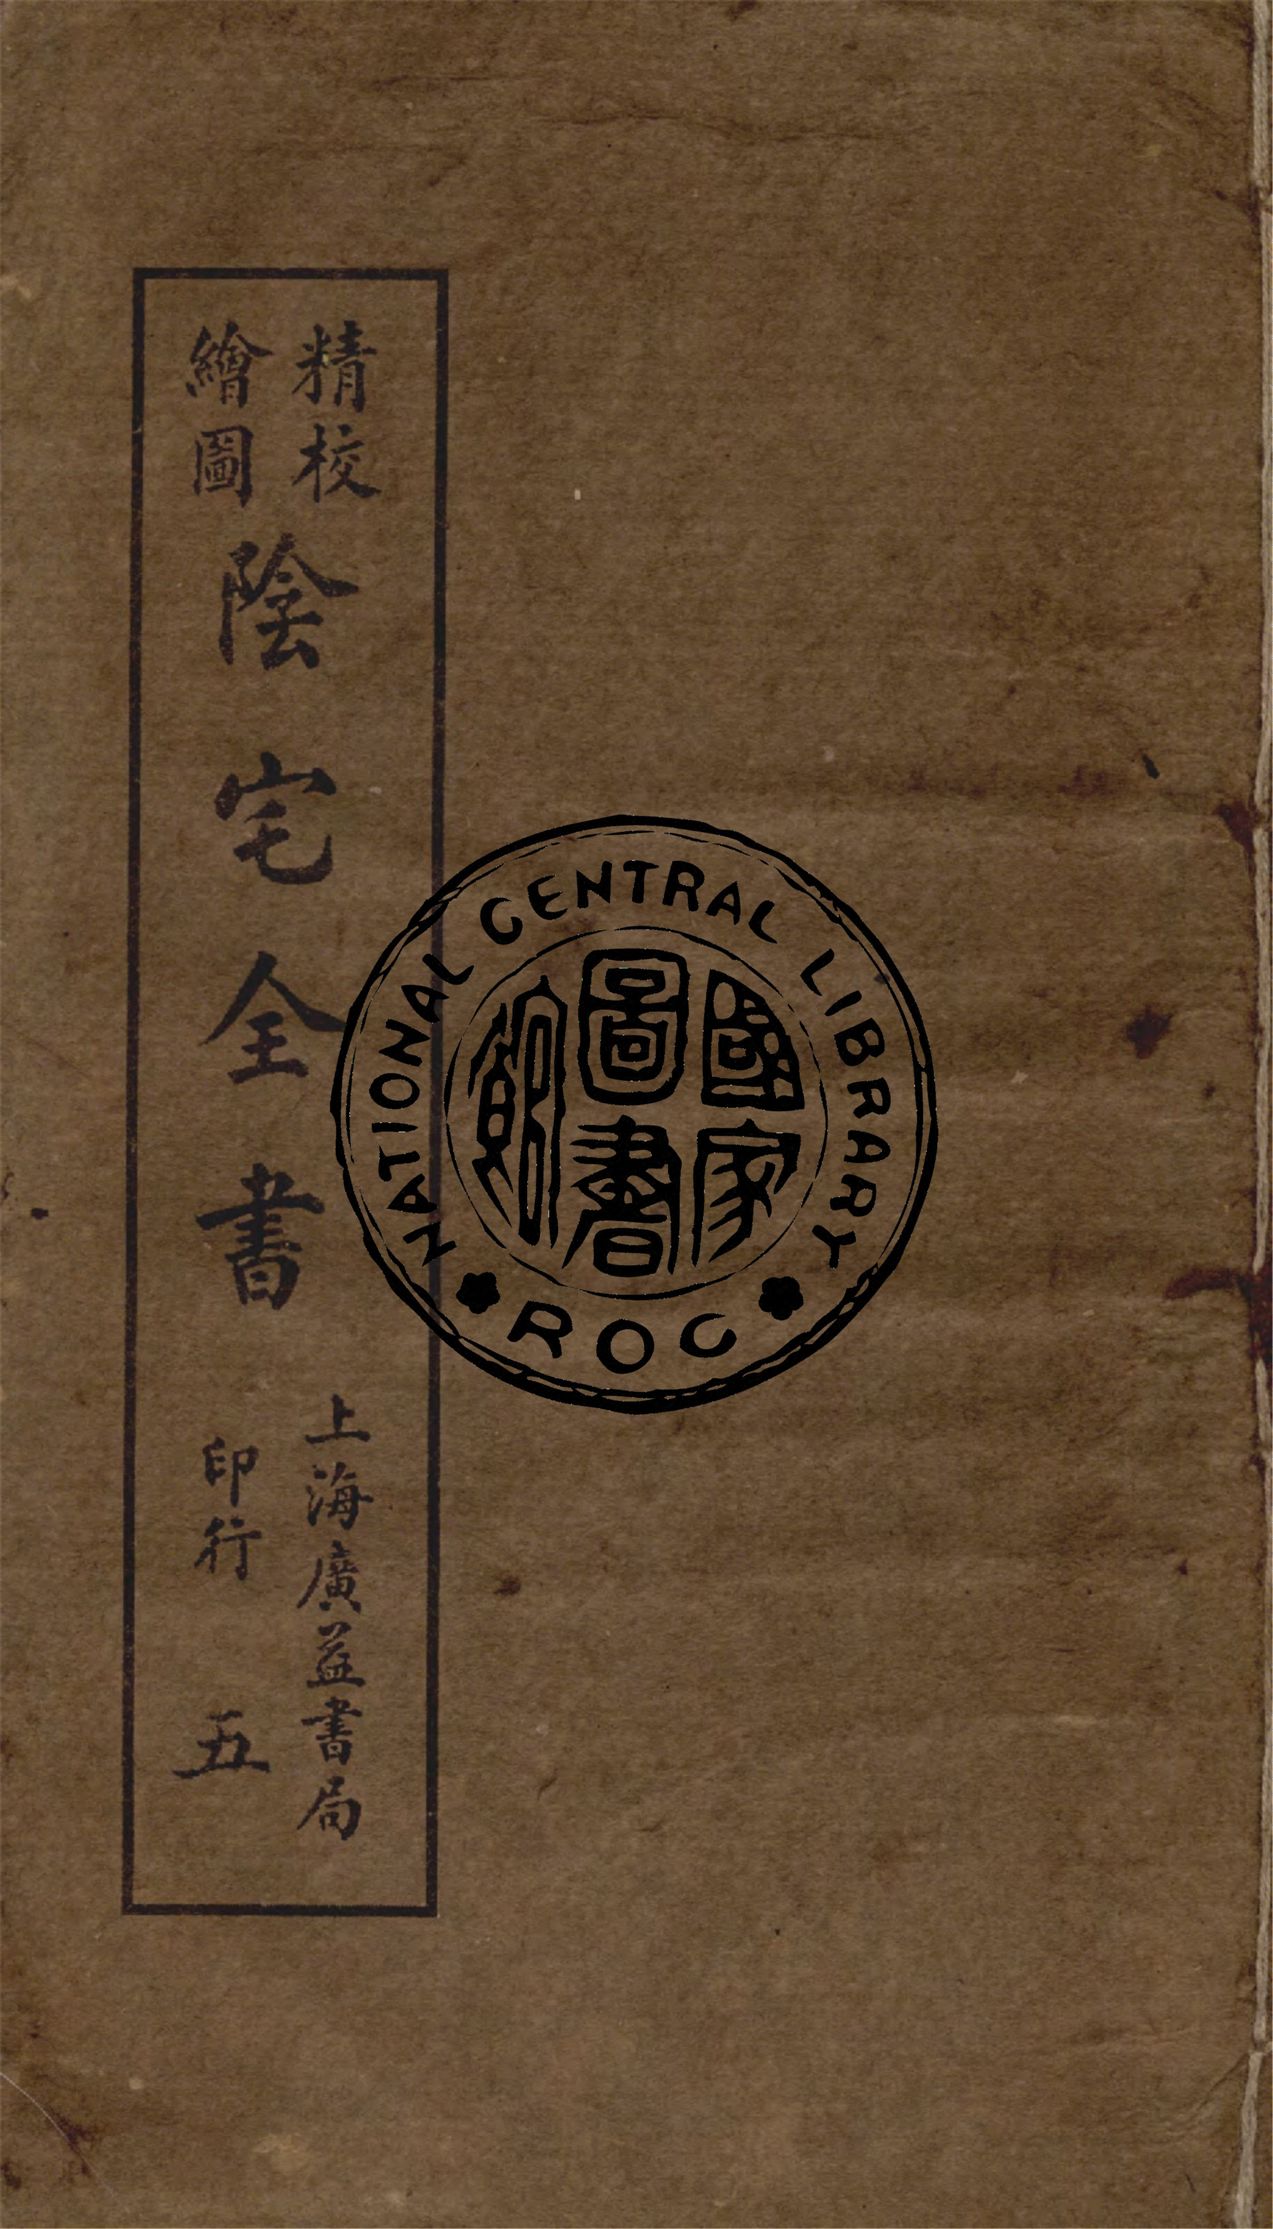 精校
繪圖
陰宅全書
上海廣益書局
印行
五
NATIONAL CENTRAL LIBRARY
國家
圖書
館
ROC